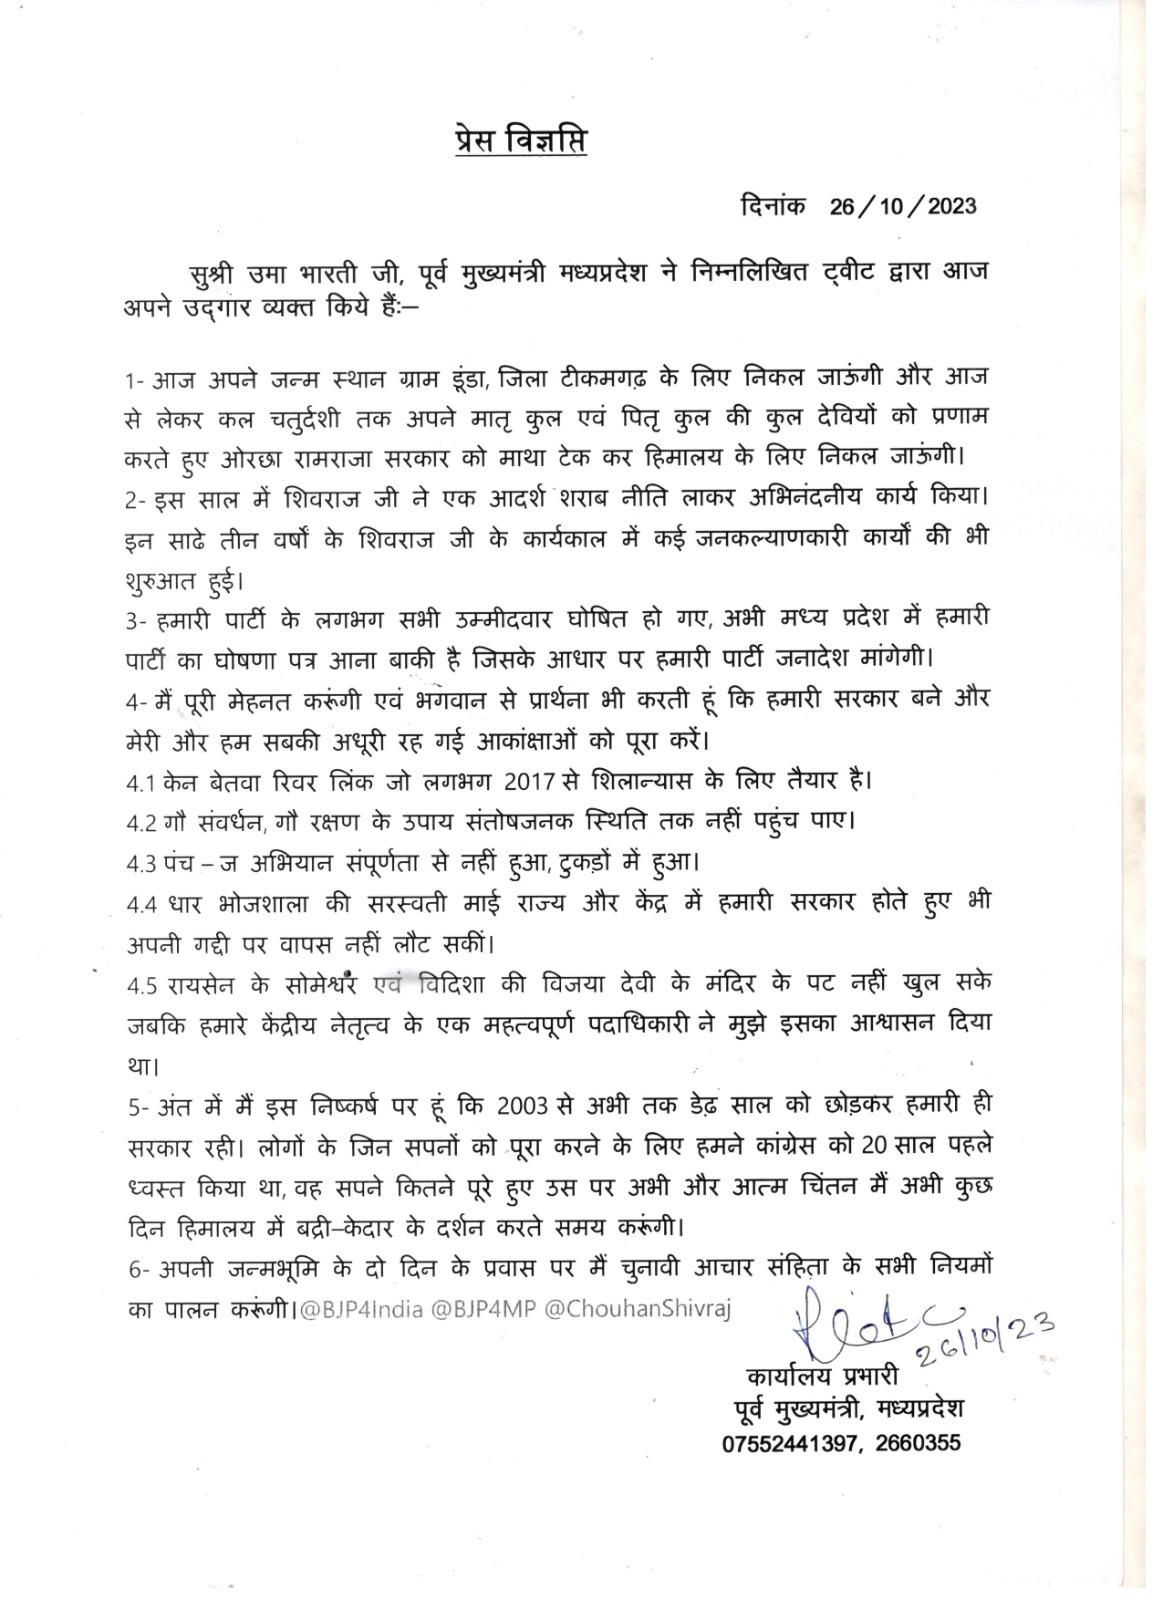 प्रेस विज्ञप्ति
दिनांक 26/10/2023
सुश्री उमा भारती जी, पूर्व मुख्यमंत्री मध्यप्रदेश ने निम्नलिखित ट्वीट द्वारा आज
अपने उद्‌गार व्यक्त किये हैंः–
1- आज अपने जन्म स्थान ग्राम डूंडा, जिला टीकमगढ़ के लिए निकल जाऊंगी और आज
से लेकर कल चतुर्दशी तक अपने मातृ कुल एवं पितृ कुल की कुल देवियों को प्रणाम
करते हुए ओरछा रामराजा सरकार को माथा टेक कर हिमालय के लिए निकल जाऊंगी।
2- इस साल में शिवराज जी ने एक आदर्श शराब नीति लाकर अभिनंदनीय कार्य किया।
इन साढे तीन वर्षों के शिवराज जी के कार्यकाल में कई जनकल्याणकारी कार्यों की भी
शुरुआत हुई।
3- हमारी पार्टी के लगभग सभी उम्मीदवार घोषित हो गए, अभी मध्य प्रदेश में हमारी
पार्टी का घोषणा पत्र आना बाकी है जिसके आधार पर हमारी पार्टी जनादेश मांगेगी।
4- मैं पूरी मेहनत करूंगी एवं भगवान से प्रार्थना भी करती हूं कि हमारी सरकार बने और
मेरी और हम सबकी अधूरी रह गई आकांक्षाओं को पूरा करें।
4.1 केन बेतवा रिवर लिंक जो लगभग 2017 से शिलान्यास के लिए तैयार है।
4.2 गौ संवर्धन, गौ रक्षण के उपाय संतोषजनक स्थिति तक नहीं पहुंच पाए।
4.3 पंच – ज अभियान संपूर्णता से नहीं हुआ, टुकड़ों में हुआ।
4.4 धार भोजशाला की सरस्वती माई राज्य और केंद्र में हमारी सरकार होते हुए भी
अपनी गद्दी पर वापस नहीं लौट सकीं।
4.5 रायसेन के सोमेश्वर एवं विदिशा की विजया देवी के मंदिर के पट नहीं खुल सके
जबकि हमारे केंद्रीय नेतृत्व के एक महत्वपूर्ण पदाधिकारी ने मुझे इसका आश्वासन दिया
था।
5- अंत में मैं इस निष्कर्ष पर हूं कि 2003 से अभी तक डेढ़ साल को छोड़कर हमारी ही
सरकार रही। लोगों के जिन सपनों को पूरा करने के लिए हमने कांग्रेस को 20 साल पहले
ध्वस्त किया था, वह सपने कितने पूरे हुए उस पर अभी और आत्म चिंतन मैं अभी कुछ
दिन हिमालय में बद्री–केदार के दर्शन करते समय करूंगी।
6- अपनी जन्मभूमि के दो दिन के प्रवास पर मैं चुनावी आचार संहिता के सभी नियमों
का पालन करूंगी।@BJP4India @BJP4MP @ChouhanShivraj
26/10/23
कार्यालय प्रभारी
पूर्व मुख्यमंत्री, मध्यप्रदेश
07552441397, 2660355